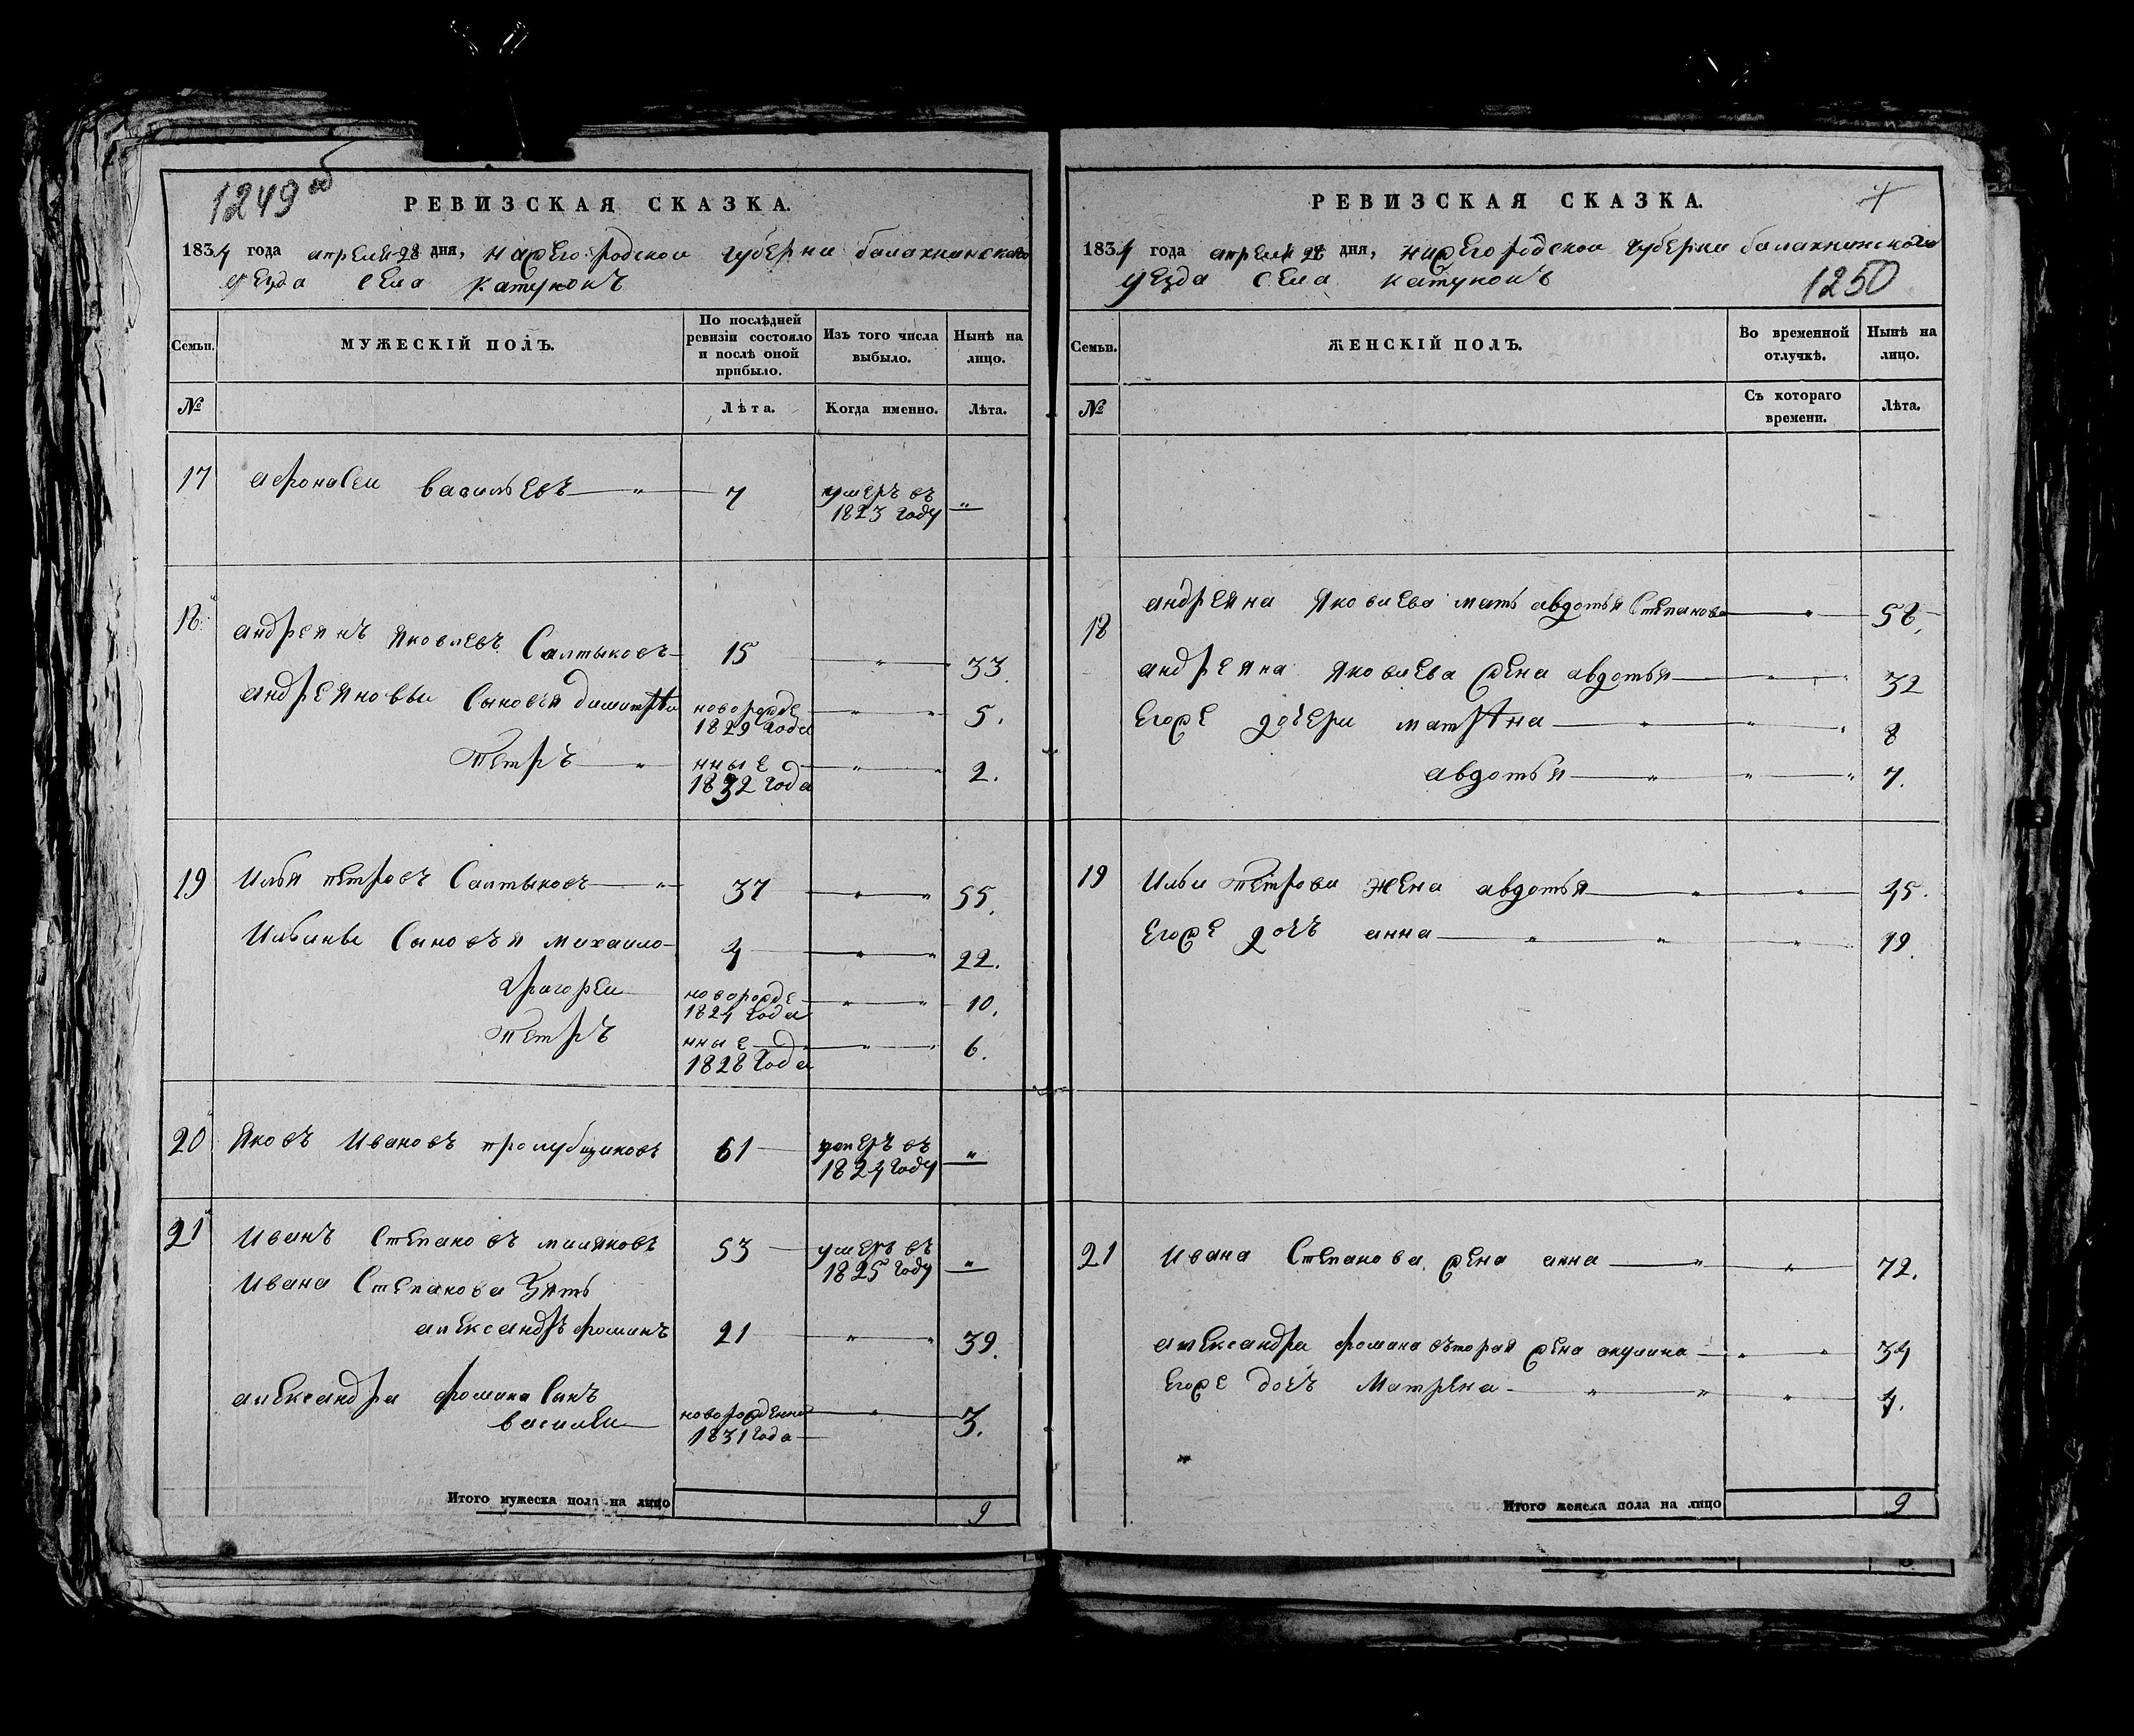 1249 об
РЕВИЗСКАЯ СКАЗКА.
1834 года апреля 28 дня, нижегородскои губерни балахнинскаго
уезда села катунокъ
Семьи.
МУЖЕСКІЙ ПОЛЪ.
По послѣдней ревизіи состояло и послѣ оной прибыло.
Изъ того числа выбыло.
Нынѣ на лицо.
№
Лѣта.
Когда именно.
Лѣта.
17 афонасеи васильевъ 7 умеръ въ 1823 году
18 андреянъ яковлевъ Салтыковъ 15 33
андреяновы Сыновья димитри новорожде 1829 года 5.
петръ нные 1832 года 2.
19 Илья петровъ Салтыковъ 37 55.
Ильины Сыновья михаило 4 22.
григореи новорожде 1824 года 10.
петръ нные 1828 года 6.
20 яковъ Ивановъ пролубщиковъ 61 умеръ въ 1824 году
21 Иванъ Степановъ миляковъ 53 умеръ въ 1825 году
Ивана Степанова Зять
александръ фоминъ 21 39.
александра фомина Сынъ
василеи новорожденны 1831 года 3.
Итого мужеска пола на лицо 9
РЕВИЗСКАЯ СКАЗКА.
1834 года апреля 28 дня, нижегородскои губерни балахнинскаго
уезда села катунокъ
1250
Семьи.
ЖЕНСКІЙ ПОЛЪ.
Во временной отлучкѣ.
Нынѣ на лицо.
№
Съ котораго времени.
Лѣта.
18 андреяна яковлева мать авдотья Степанова 58.
андреяна яковлева жена авдотья 32
Егоже дочери матряна 8
авдотья 7.
19 Ильи петрова жена авдотья 45.
Егоже дочь анна 19.
21 Ивана Степанова жена анна 72.
александра фомина вторая жена акулина 34
Егоже дочь Матрена 4.
Итого женска пола на лицо 9